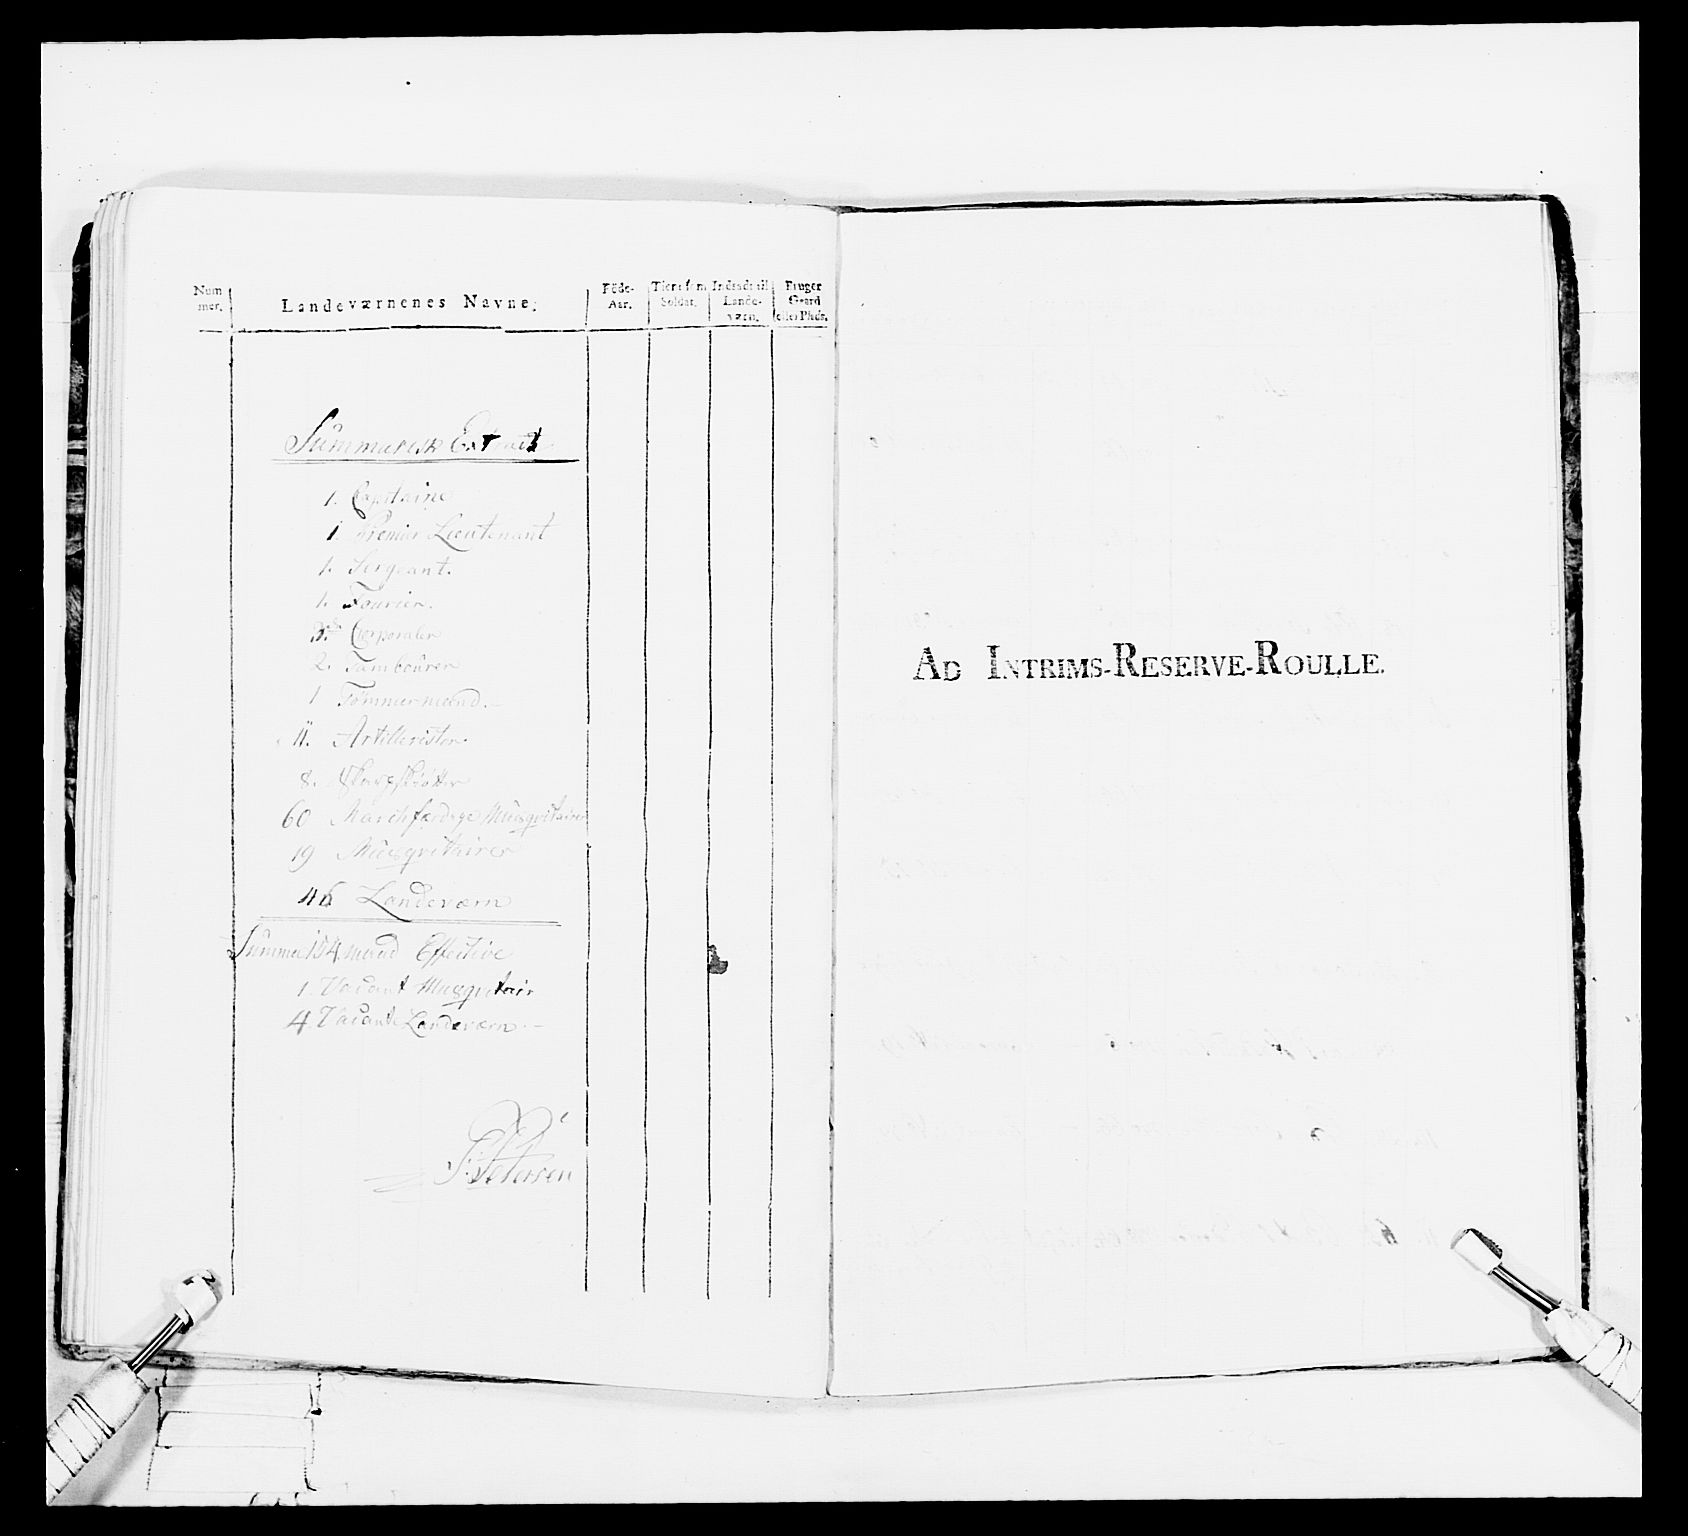 Num mer.
Landeværnenes Navne.
Föde-Aar.
Tient som Soldat.
Indsadt til Lande-værn.
Bruger Gaard eller Plads.
Summarisk Extract
1. Capitaine
1. Premier Lieutenant
1. Sergeant.
1. Fourier.
3. Corporaler
2. Tambourer
1 Tømmermand.
11. Artillerister
8. Skarpskötter
60 Marchfærdige Musqvitairer
19 Musqvitairer
46 Landeværn
Summa 154 mand Effective
1. Vacant Musqvitair
4 Vacante Landeværn.
Petersen
AD INTRIMS-RESERVE-ROULLE.